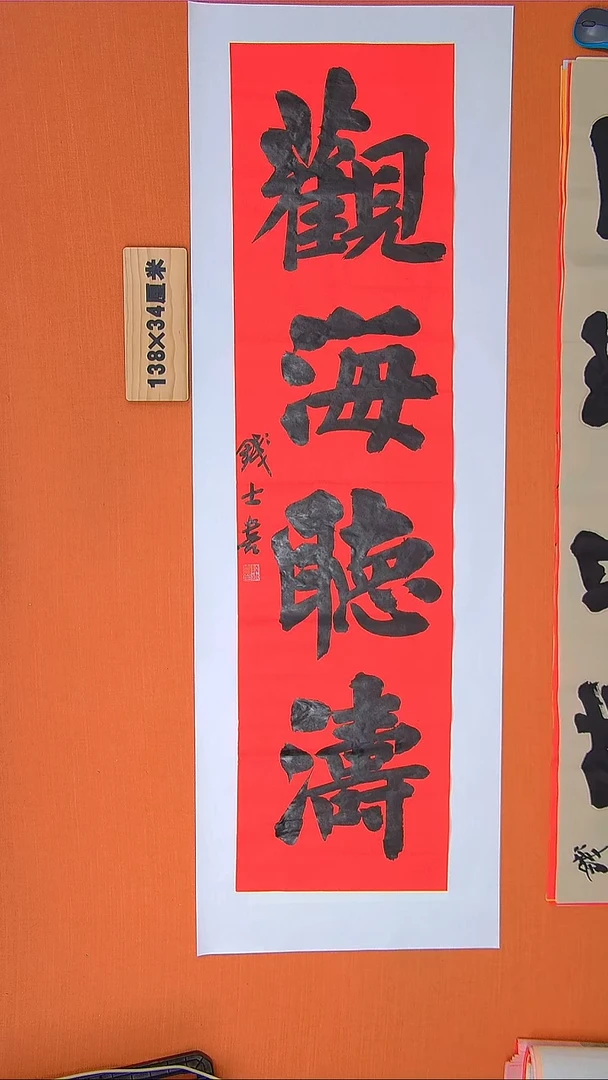 觀海聽濤
錢士書
138×34厘米